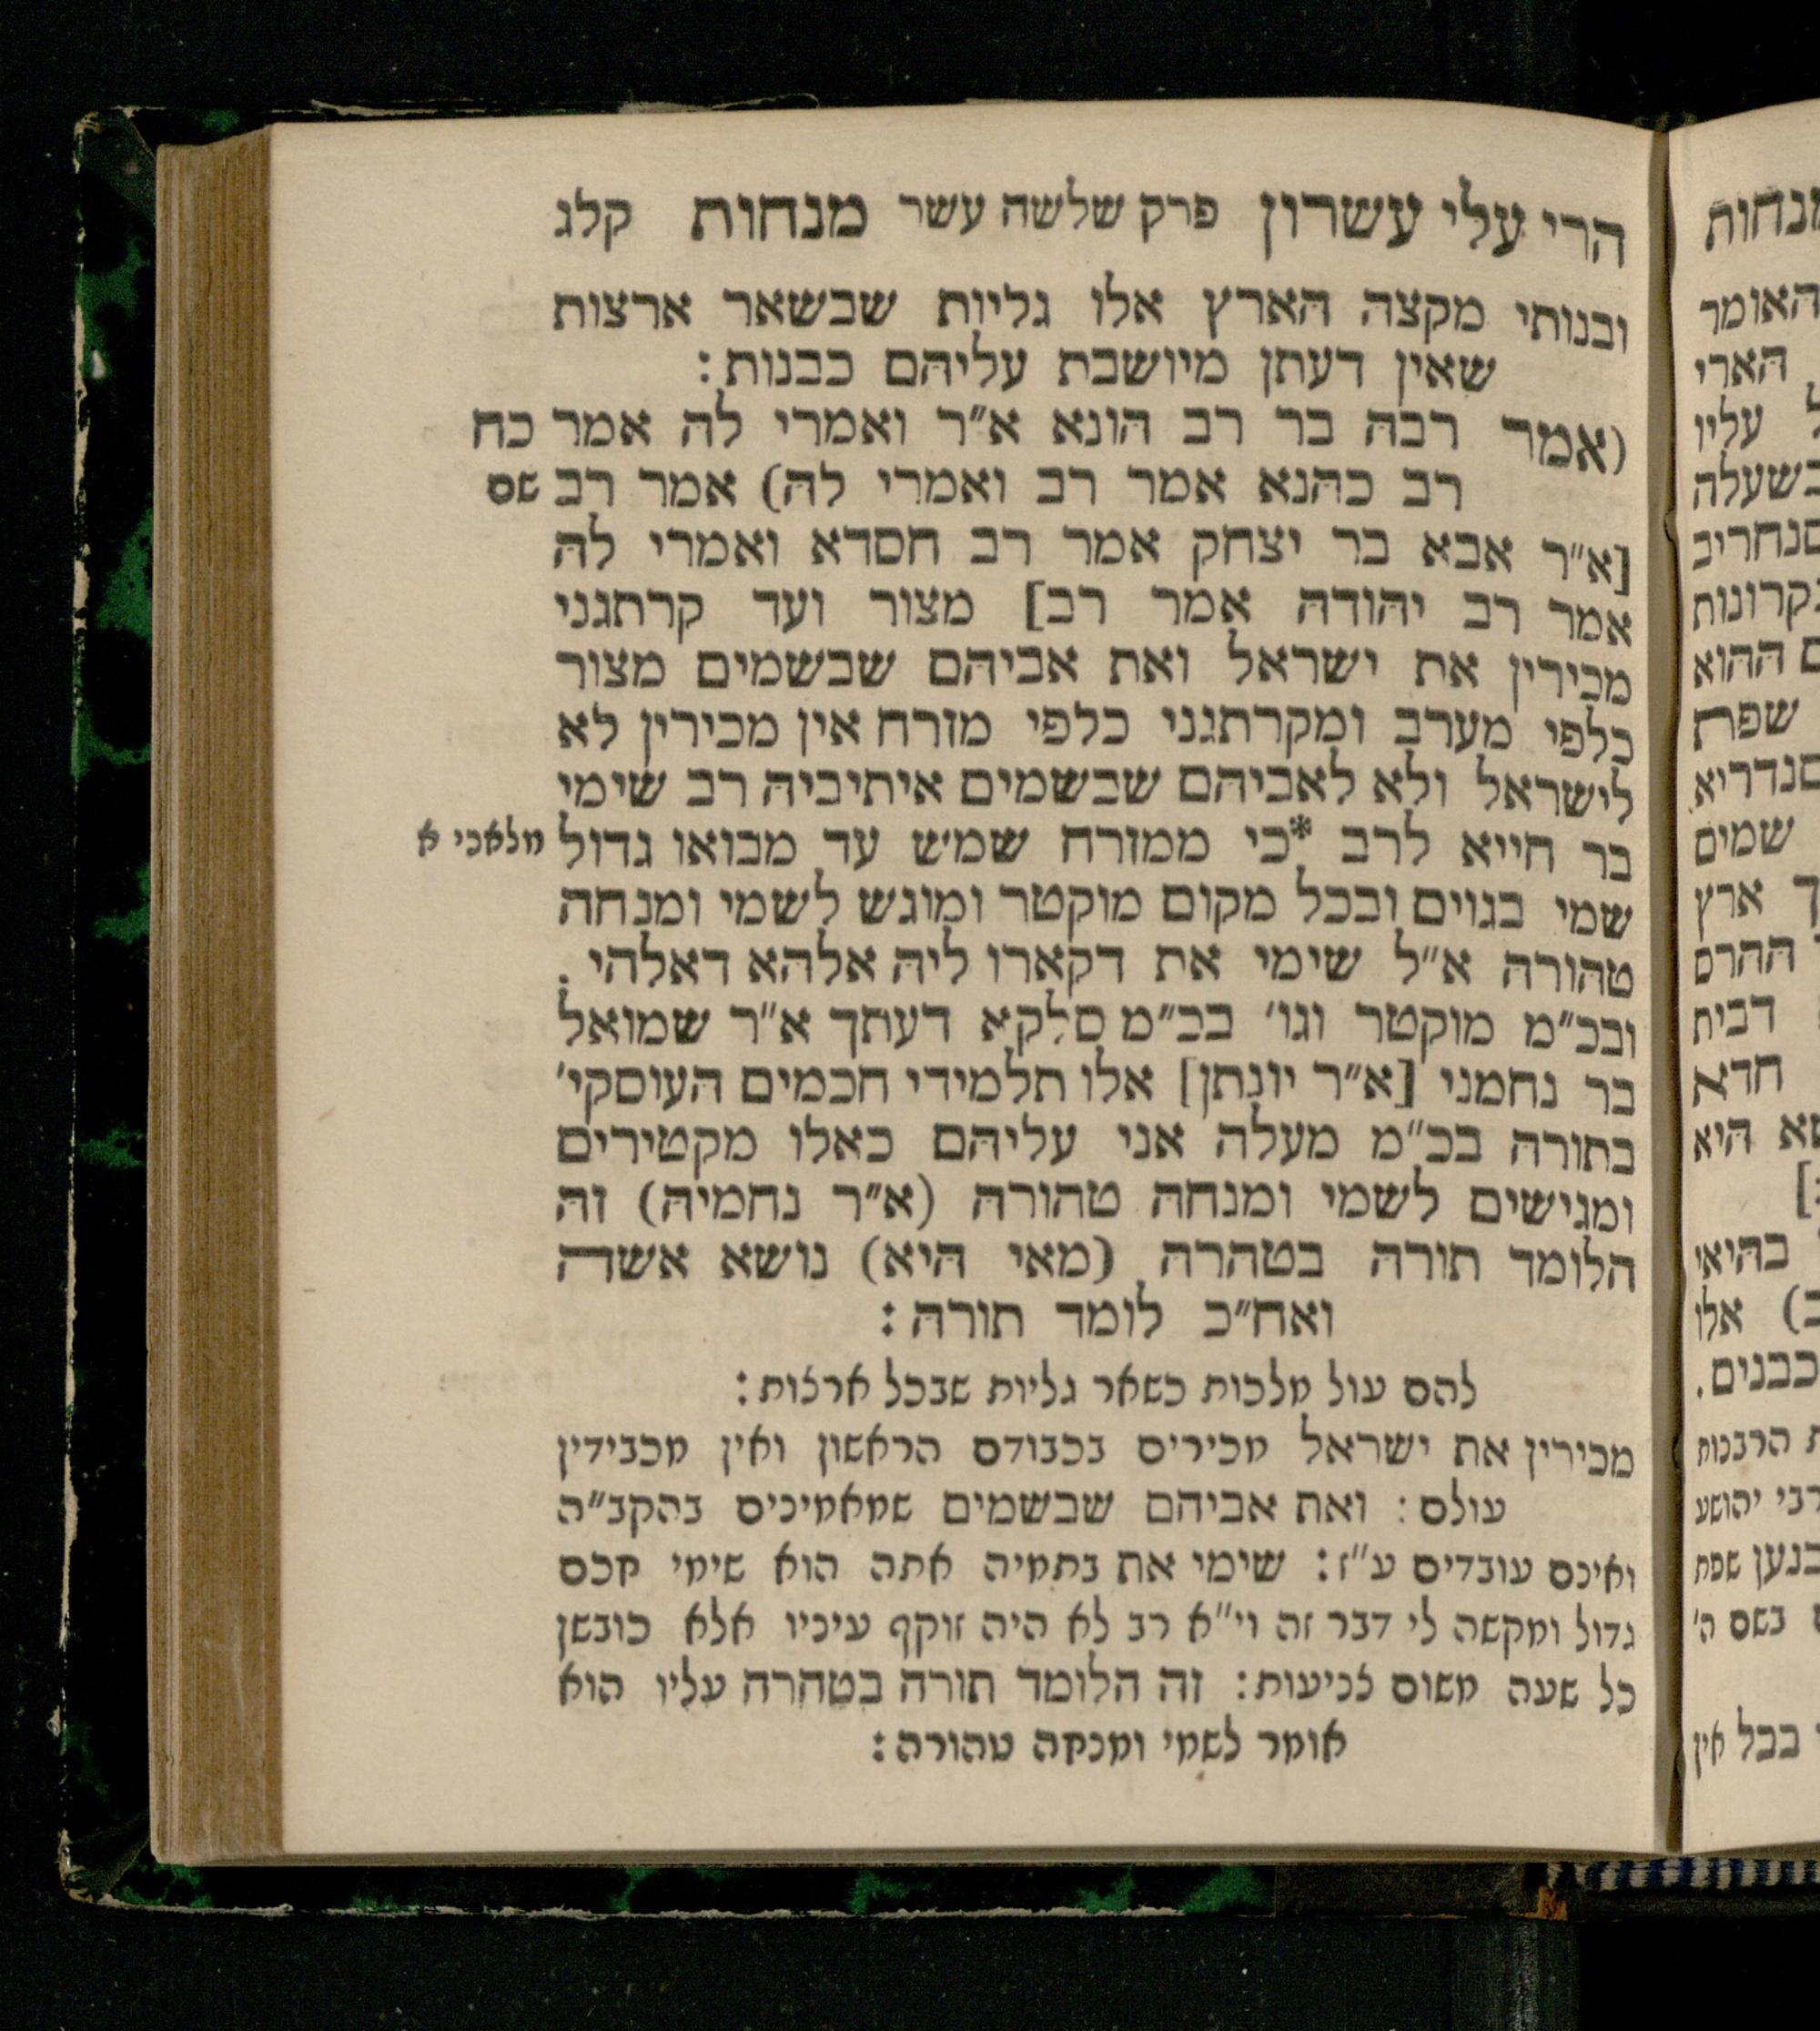 הרי עלי עשרון פרק שלשה עשר מנחות קלג
ובנותי מקצה הארץ אלו גליות שבשאר ארצות
שאין דעתן מיושבת עליהם כבנות:
(אמר רבה בר רב הונא א״ר ואמרי לה אמר כח
רב כהנא אמר רב ואמרי לה) אמר רב שם
[א״ר אבא בר יצחק אמר רב חסדא ואמרי לה
אמר רב יהודה אמר רב] מצור ועד קרתגני
מכירין את ישראל ואת אביהם שבשמים מצור
כלפי מערב ומקרתגני כלפי מזרח אין מכירין לא
לישראל ולא לאביהם שבשמים איתיביה רב שימי
בר חייא לרב *כי ממזרח שמש עד מבואו גדול מלאכי א
שמי בגוים ובכל מקום מוקטר ומוגש לשמי ומנחה
טהורה א״ל שימי את דקארו ליה אלהא דאלהי.
ובכ״מ מוקטר וגו׳ בכ״מ סלקא דעתך א״ר שמואל
בר נחמני [א״ר יונתן] אלו תלמידי חכמים העוסקי׳
בתורה בכ״מ מעלה אני עליהם כאלו מקטירים
ומגישים לשמי ומנחה טהורה (א״ר נחמיה) זה
הלומד תורה בטהרה (מאי היא) נושא אשה
ואח״כ לומד תורה:
להם עול מלכות כשאר גליות שבכל ארצות:
מכירין את ישראל מכירים בכבודם הראשון ואין מכבידין
עולם: ואת אביהם שבשמים שמאמינים בהקב״ה
ואינם עובדים ע״ז: שימי את בתמיה אתה הוא שימי חכם
גדול ומקשה לי דבר זה וי״א רב לא היה זוקף עיניו אלא כובשן
כל שעה משום צניעות: זה הלומד תורה בטהרה עליו הוא
אומר לשמי ומנחה טהורה:
מנחות
האומר
הארי
עליו
בשעלה
סנחריב
בקרונות
ההוא
שפת
שמים
ארץ
ההרס
דבית
חדא
היא
בהיאי
אלו
כבנים.
הרבנות
רבי יהושע
כנען שפת
בשם ה׳
בבל אין